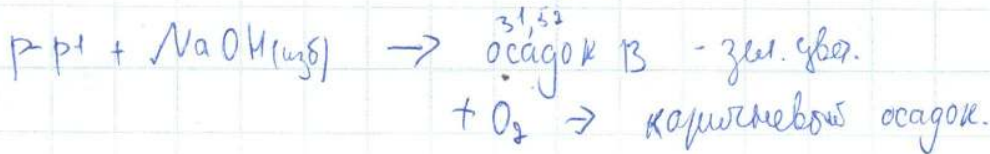 31,52
р-р1 + NaOH(изб) → осадок B - зел. цвет.
+ O₂ → коричневый осадок.